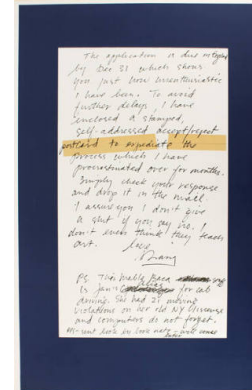 The application is due
by Dec 31 which shows
you just how unenthusiastic
I have been. To avoid
further delays, I have
enclosed a stamped,
self-addressed accept/reject
postcard to expediate the
process which I have
procrastinated over for months.
Simply check your response
and drop it in the mail
I assure you I don't give
a shit if you say no. I
don't even think they teach
art.
love,
PS. This Mably Baca
is Jan's alias for cab
driving. She had 21 moving
violations on her old NY license
and computers do not forget.